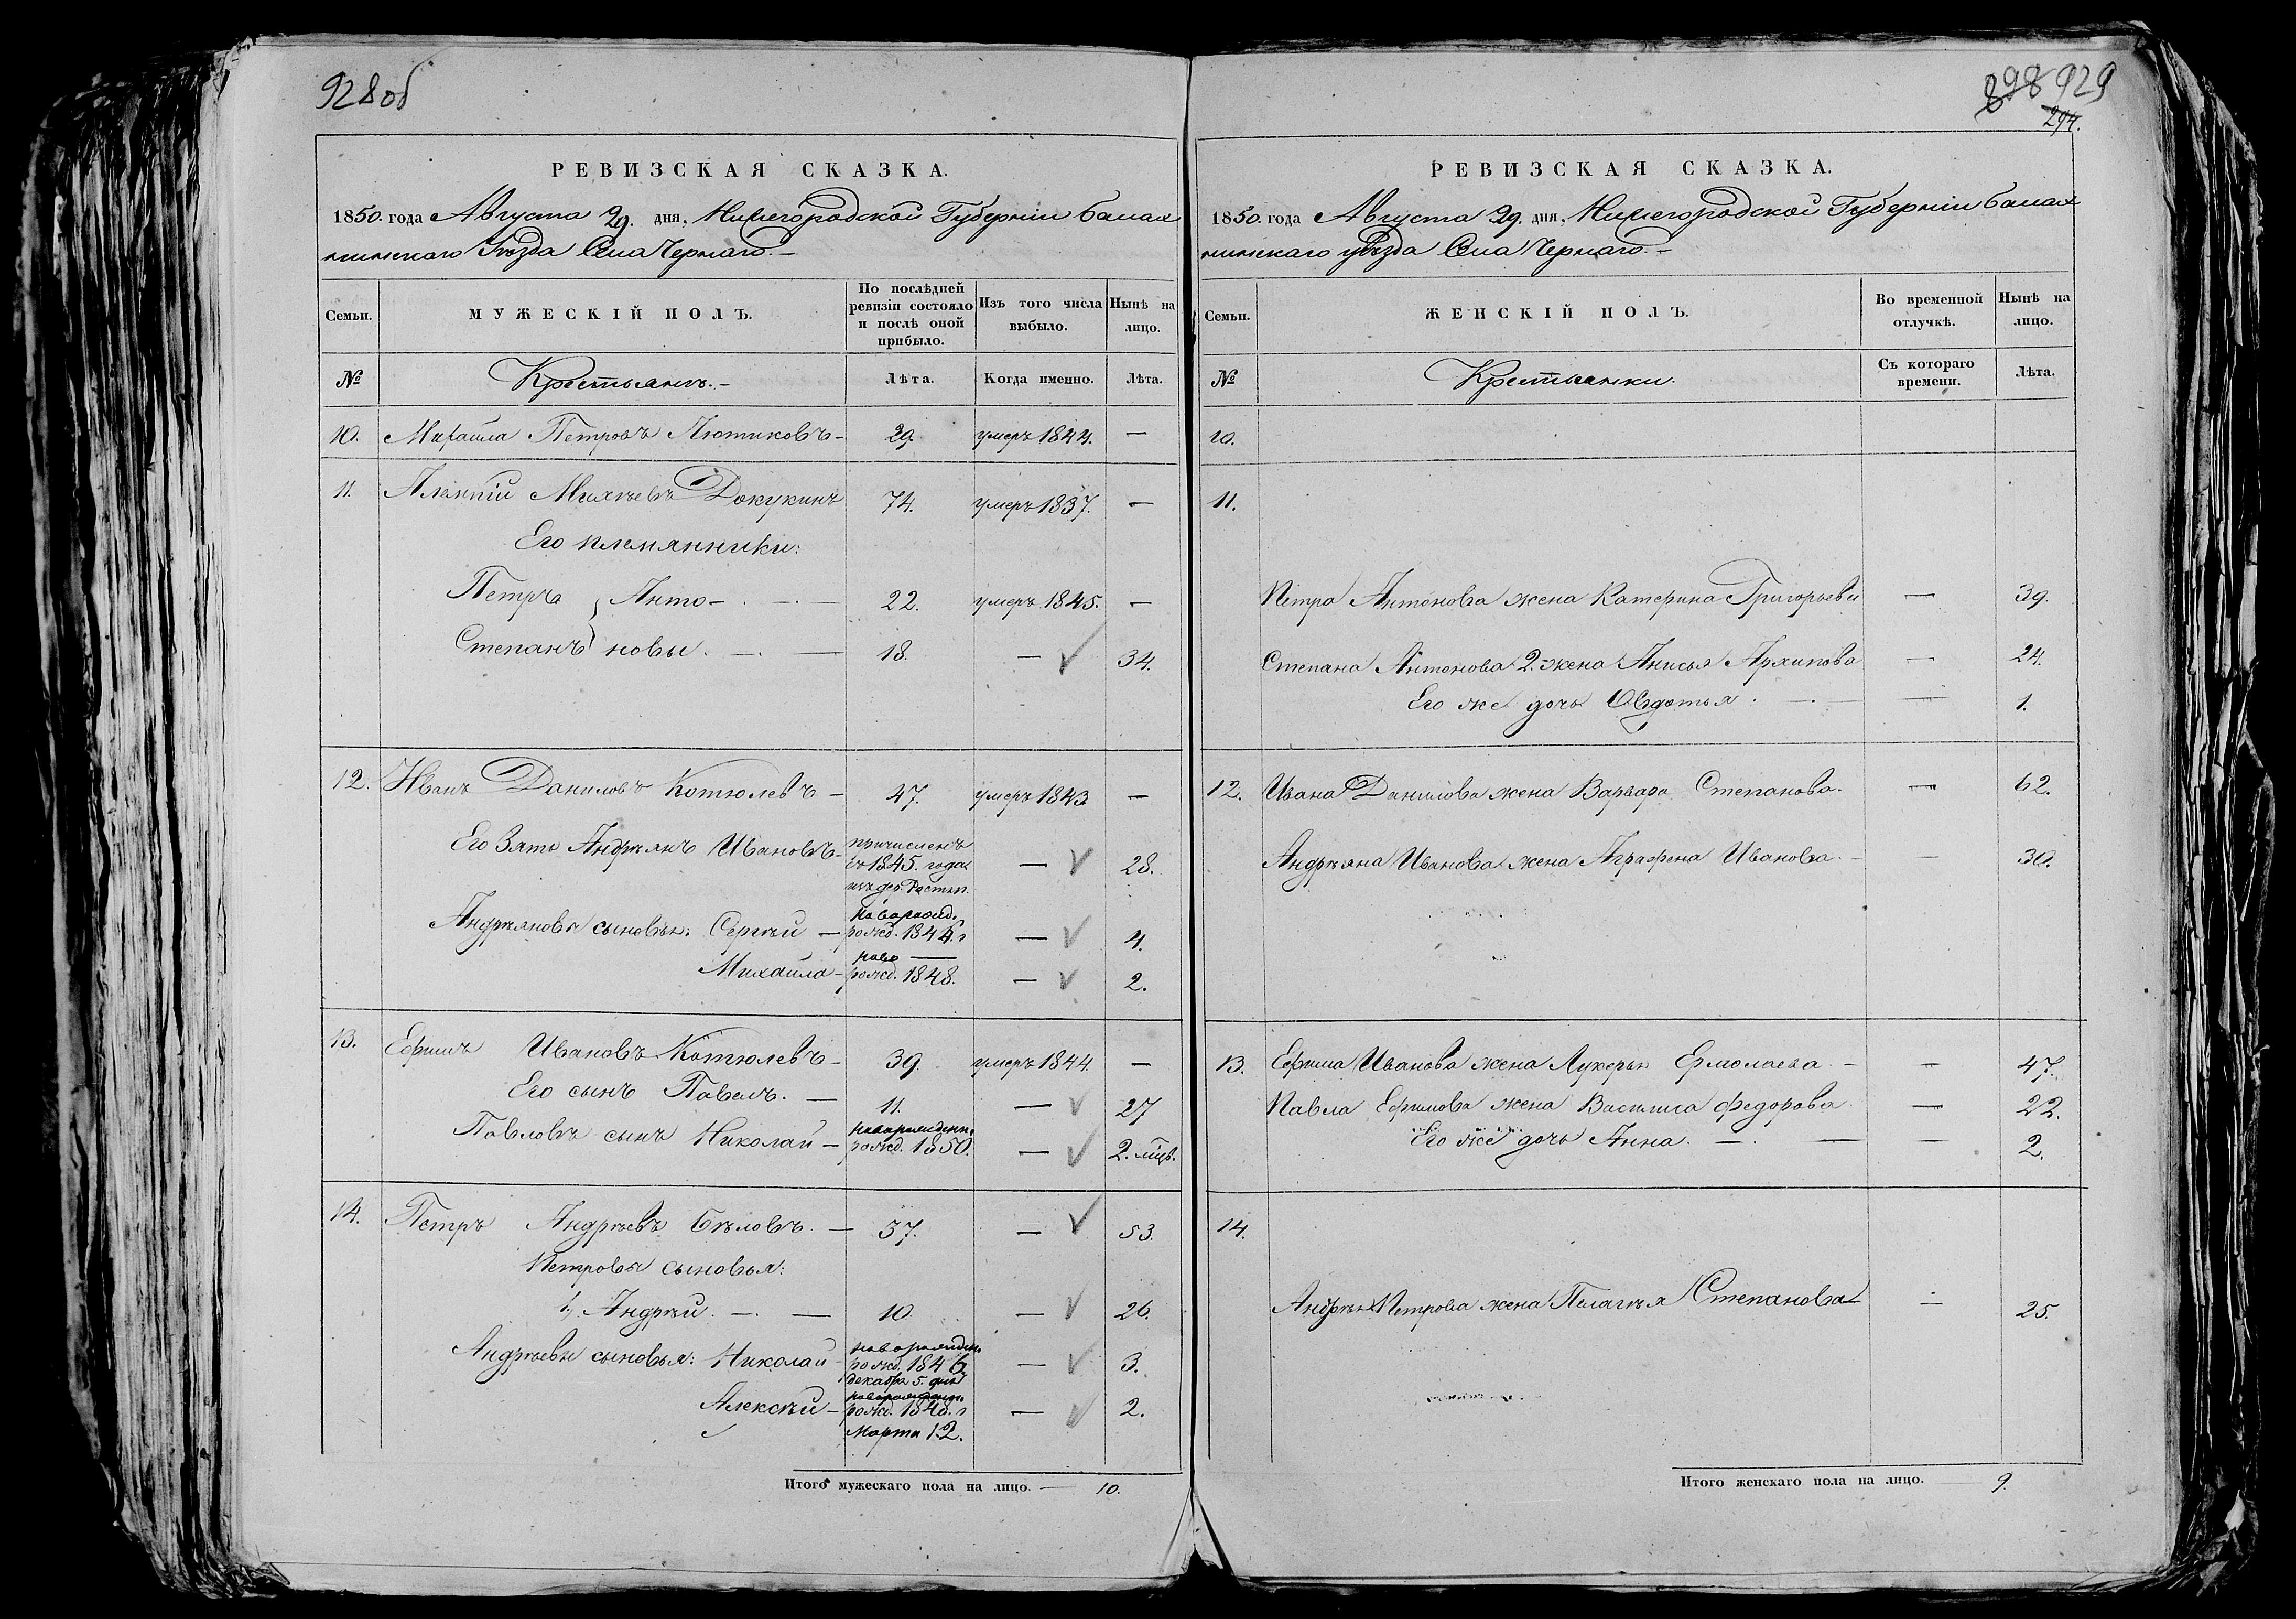 928об
РЕВИЗСКАЯ СКАЗКА.
1850. года Августа 29. дня, Нижегородской Губерніи Балах
нинскаго Уѣзда Села Чернаго. —
Семьи.
МУЖЕСКІЙ ПОЛЪ.
По послѣдней ревизіи состояло и послѣ оной прибыло.
Изъ того числа выбыло.
Нынѣ на лицо.
№
Крестьянъ. —
Лѣта.
Когда именно.
Лѣта.
10. Михайла Петровъ Лютиковъ — 29. умеръ 1844. —
11. Алексѣй Михѣевъ Докукинъ 74. умеръ 1837. —
Его племянники:
Петръ } Анто — . — . — 22. умеръ 1845. —
Степанъ } новы . — . — 18. — 34.
12. Иванъ Даниловъ Котюлевъ — 47. умеръ 1843 —
Его Зять Андрѣянъ Ивановъ — причисленъ
въ 1845. года — 28.
изъ дер. Растяп.
Новорожд.
Андрѣяновы сыновья: Сергѣй — рожд. 1846. г — 4.
ново —
Михайла — рожд. 1848. — 2.
13. Ефимъ Ивановъ Котюлевъ — 39. умеръ 1844. —
Его сынъ Павелъ. — 11. — 27
новорожденн.
Павловъ сынъ Николай — рожд. 1850. — 2. мѣсв.
14. Петръ Андрѣевъ Бѣловъ. — 37. — 53.
Петровы сыновья:
1, Андрѣй. — . — 10. — 26.
новорожден.
Андрѣевы сыновья: Николай — рожд. 1846 — 3.
декабря 5. дня
новорожден.
Алексѣй — рожд. 1848. г — 2.
Марта 12.
Итого мужескаго пола на лицо. — 10.
898 929
294.
РЕВИЗСКАЯ СКАЗКА.
1850. года Августа 29. дня, Нижегородской Губерніи Балах
нинскаго уѣзда Села Чернаго. —
Семьи.
ЖЕНСКІЙ ПОЛЪ.
Во временной отлучкѣ.
Нынѣ на лицо.
№
Крестьянки.
Съ котораго времени.
Лѣта.
10.
11.
Петра Антонова жена Катерина Григорьевн — 39.
Степана Антонова 2. жена Анисья Архипова — 24.
Его же дочь Овдотья . — . — 1.
12. Ивана Данилова жена Варвара Степанова. — 62.
Андрѣяна Иванова жена Аграфена Иванова. — 30.
13. Ефима Иванова жена Лукерья Ермолаева — — 47.
Павла Ефимова жена Василиса Федорова — 22.
Его же дочь Анна. — . — — 2.
14.
Андрѣя Петрова жена Пелагѣя Степанова — 25.
Итого женскаго пола на лицо. — 9.